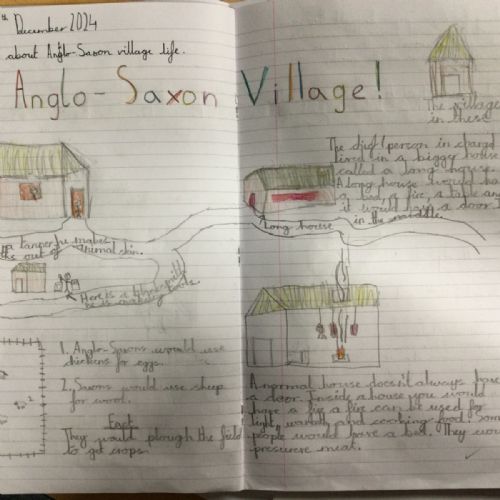 th December 2024
about Anglo-Saxon village life.
Anglo-Saxon Village!
The village
in these
The chief person in charge
lived in a biggy house
called a long house.
A long house would ha
a fire, a table an
It would have a door
in the middle.
Long house
a tanner he makes
out of animal skin.
Here is a
he is making
1. Anglo-Saxons would use
chickens for eggs.
2. Saxons would use sheep
for wool.
Fact:
They would plough the field
to get crops.
A normal house doesn't always have
a door. Inside a house you would
have a fire a fire can be used for
light, warmth and cooking food! some
people would have a bed. They wou
preserve meat.